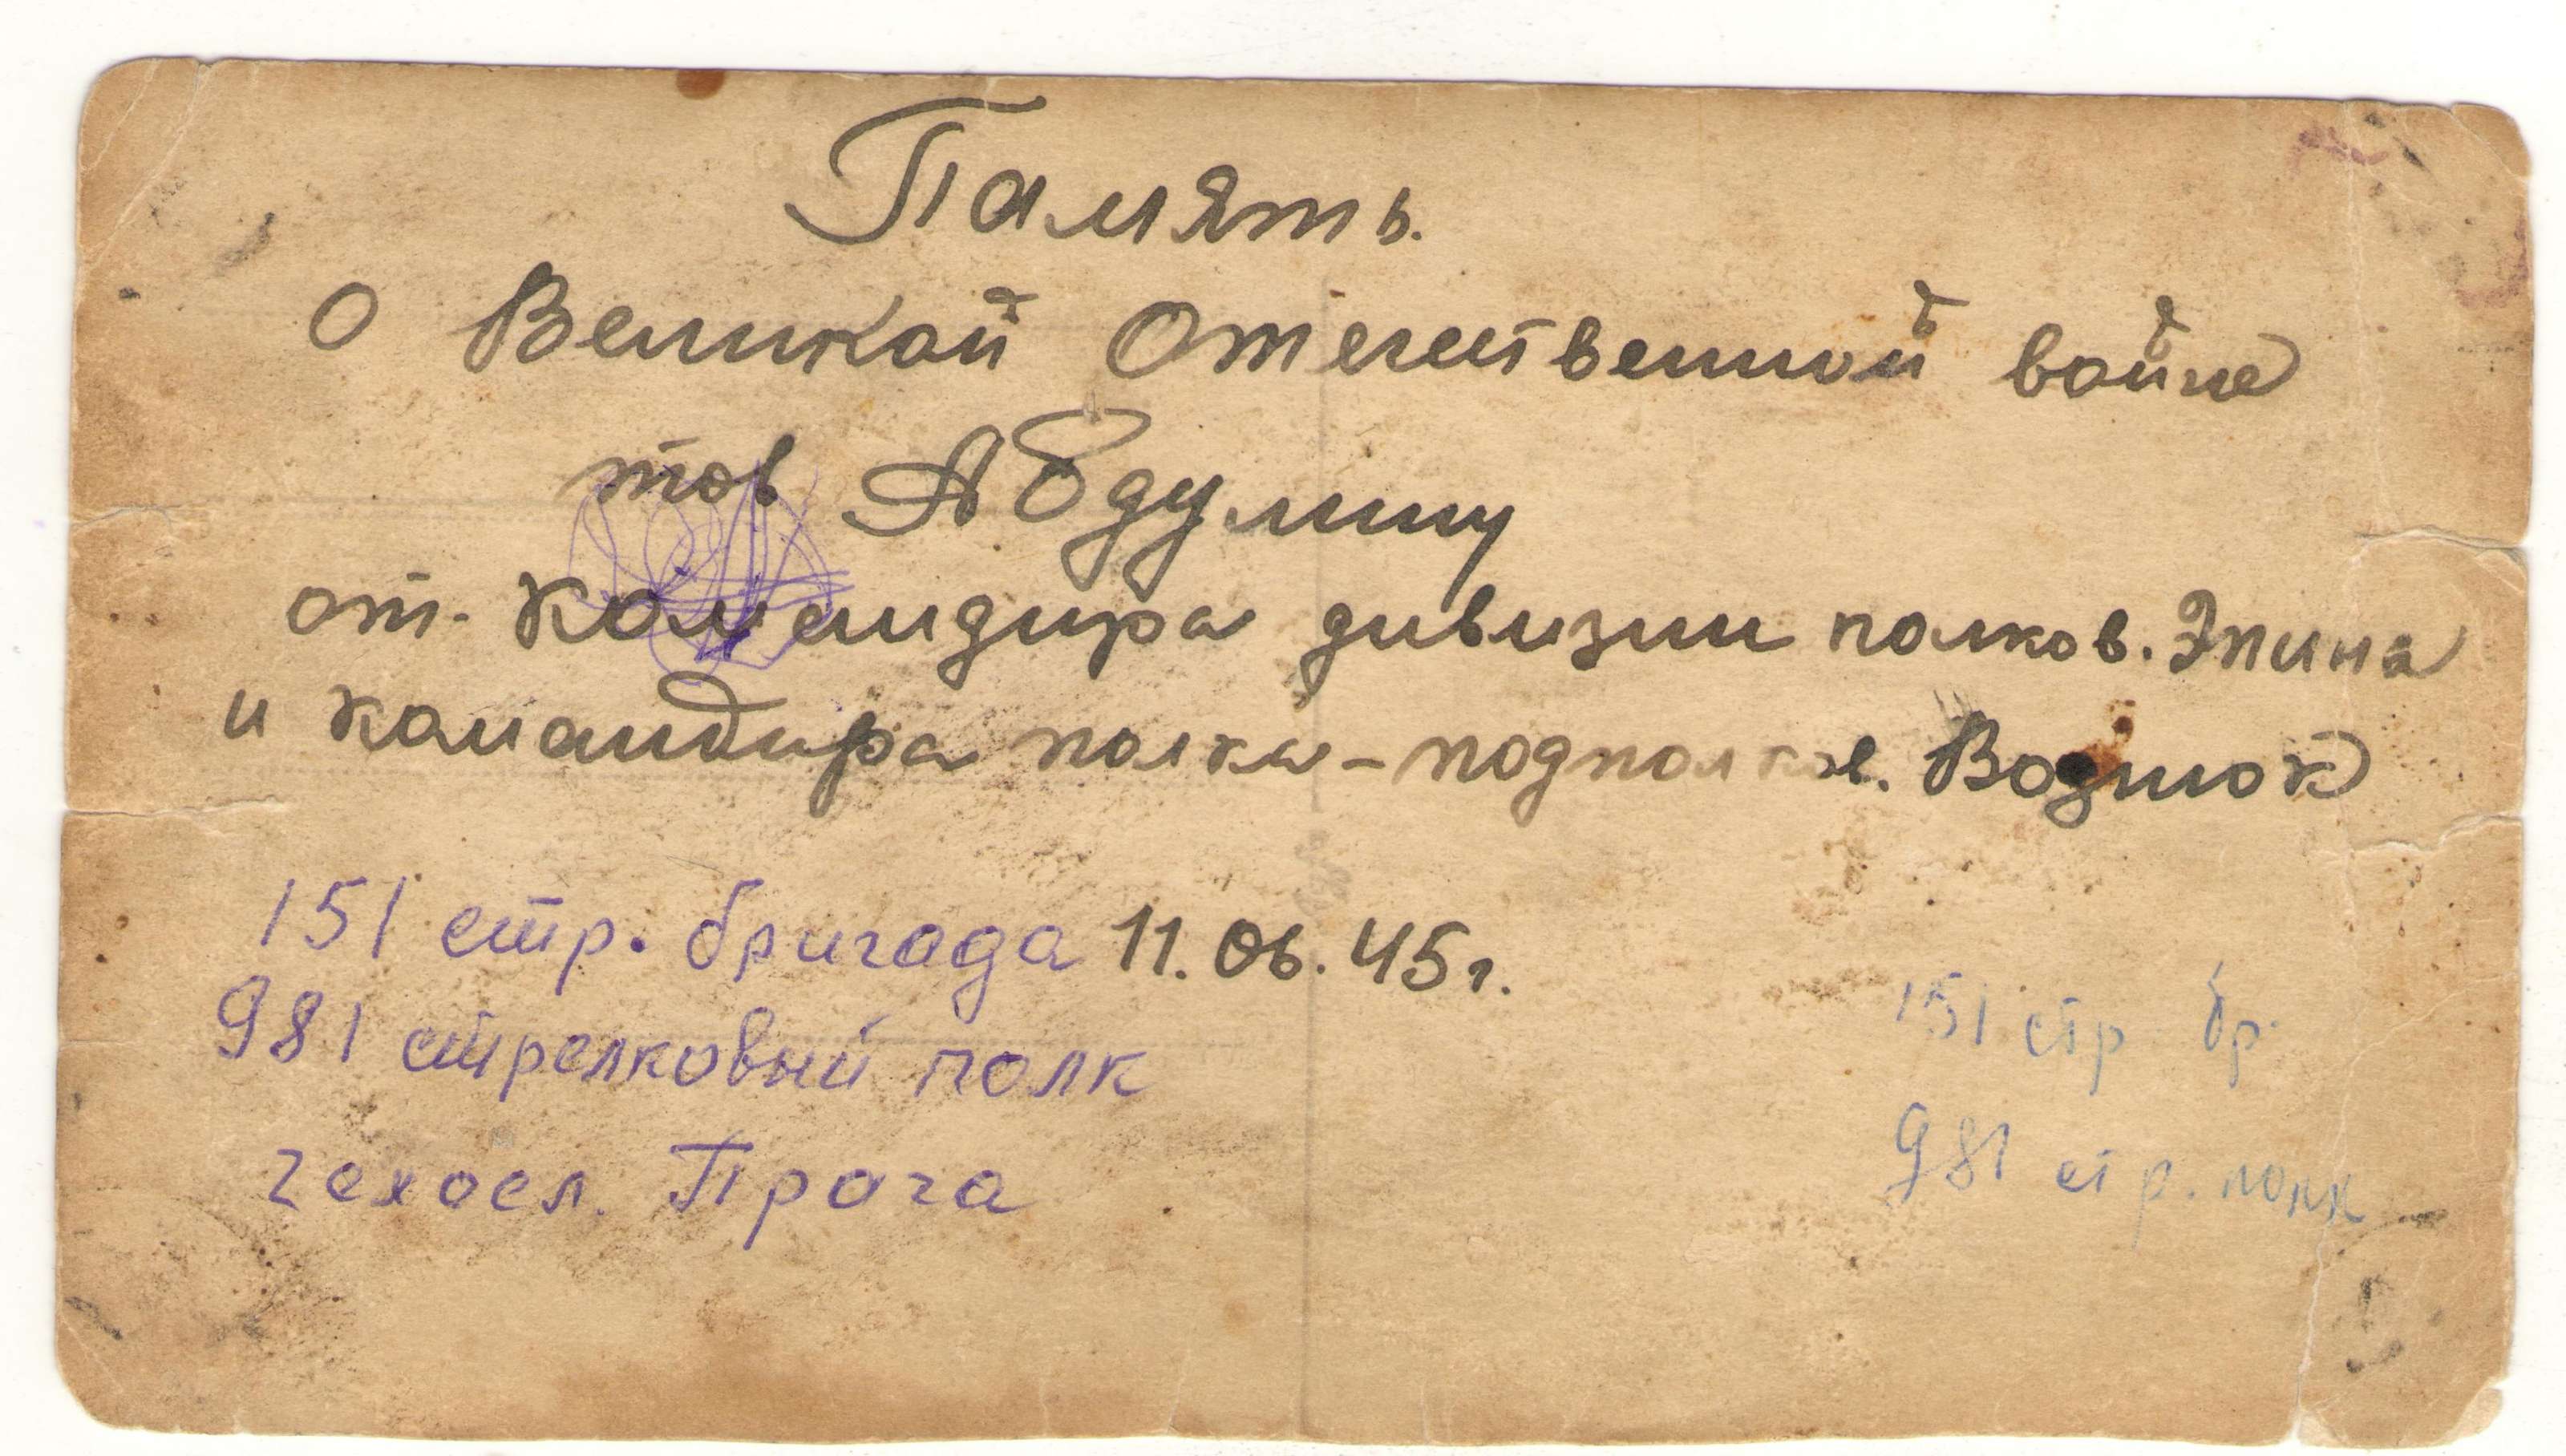 Память.
О Великой Отечественной войне
тов Абдулину
от. командира дивизии полков. Эпина
и командира полка - подполков. Возлюк
151 стр. бригада 11.06.45г.
981 стрелковый полк
чехосл. Прага
151 стр бр.
981 стр. полк